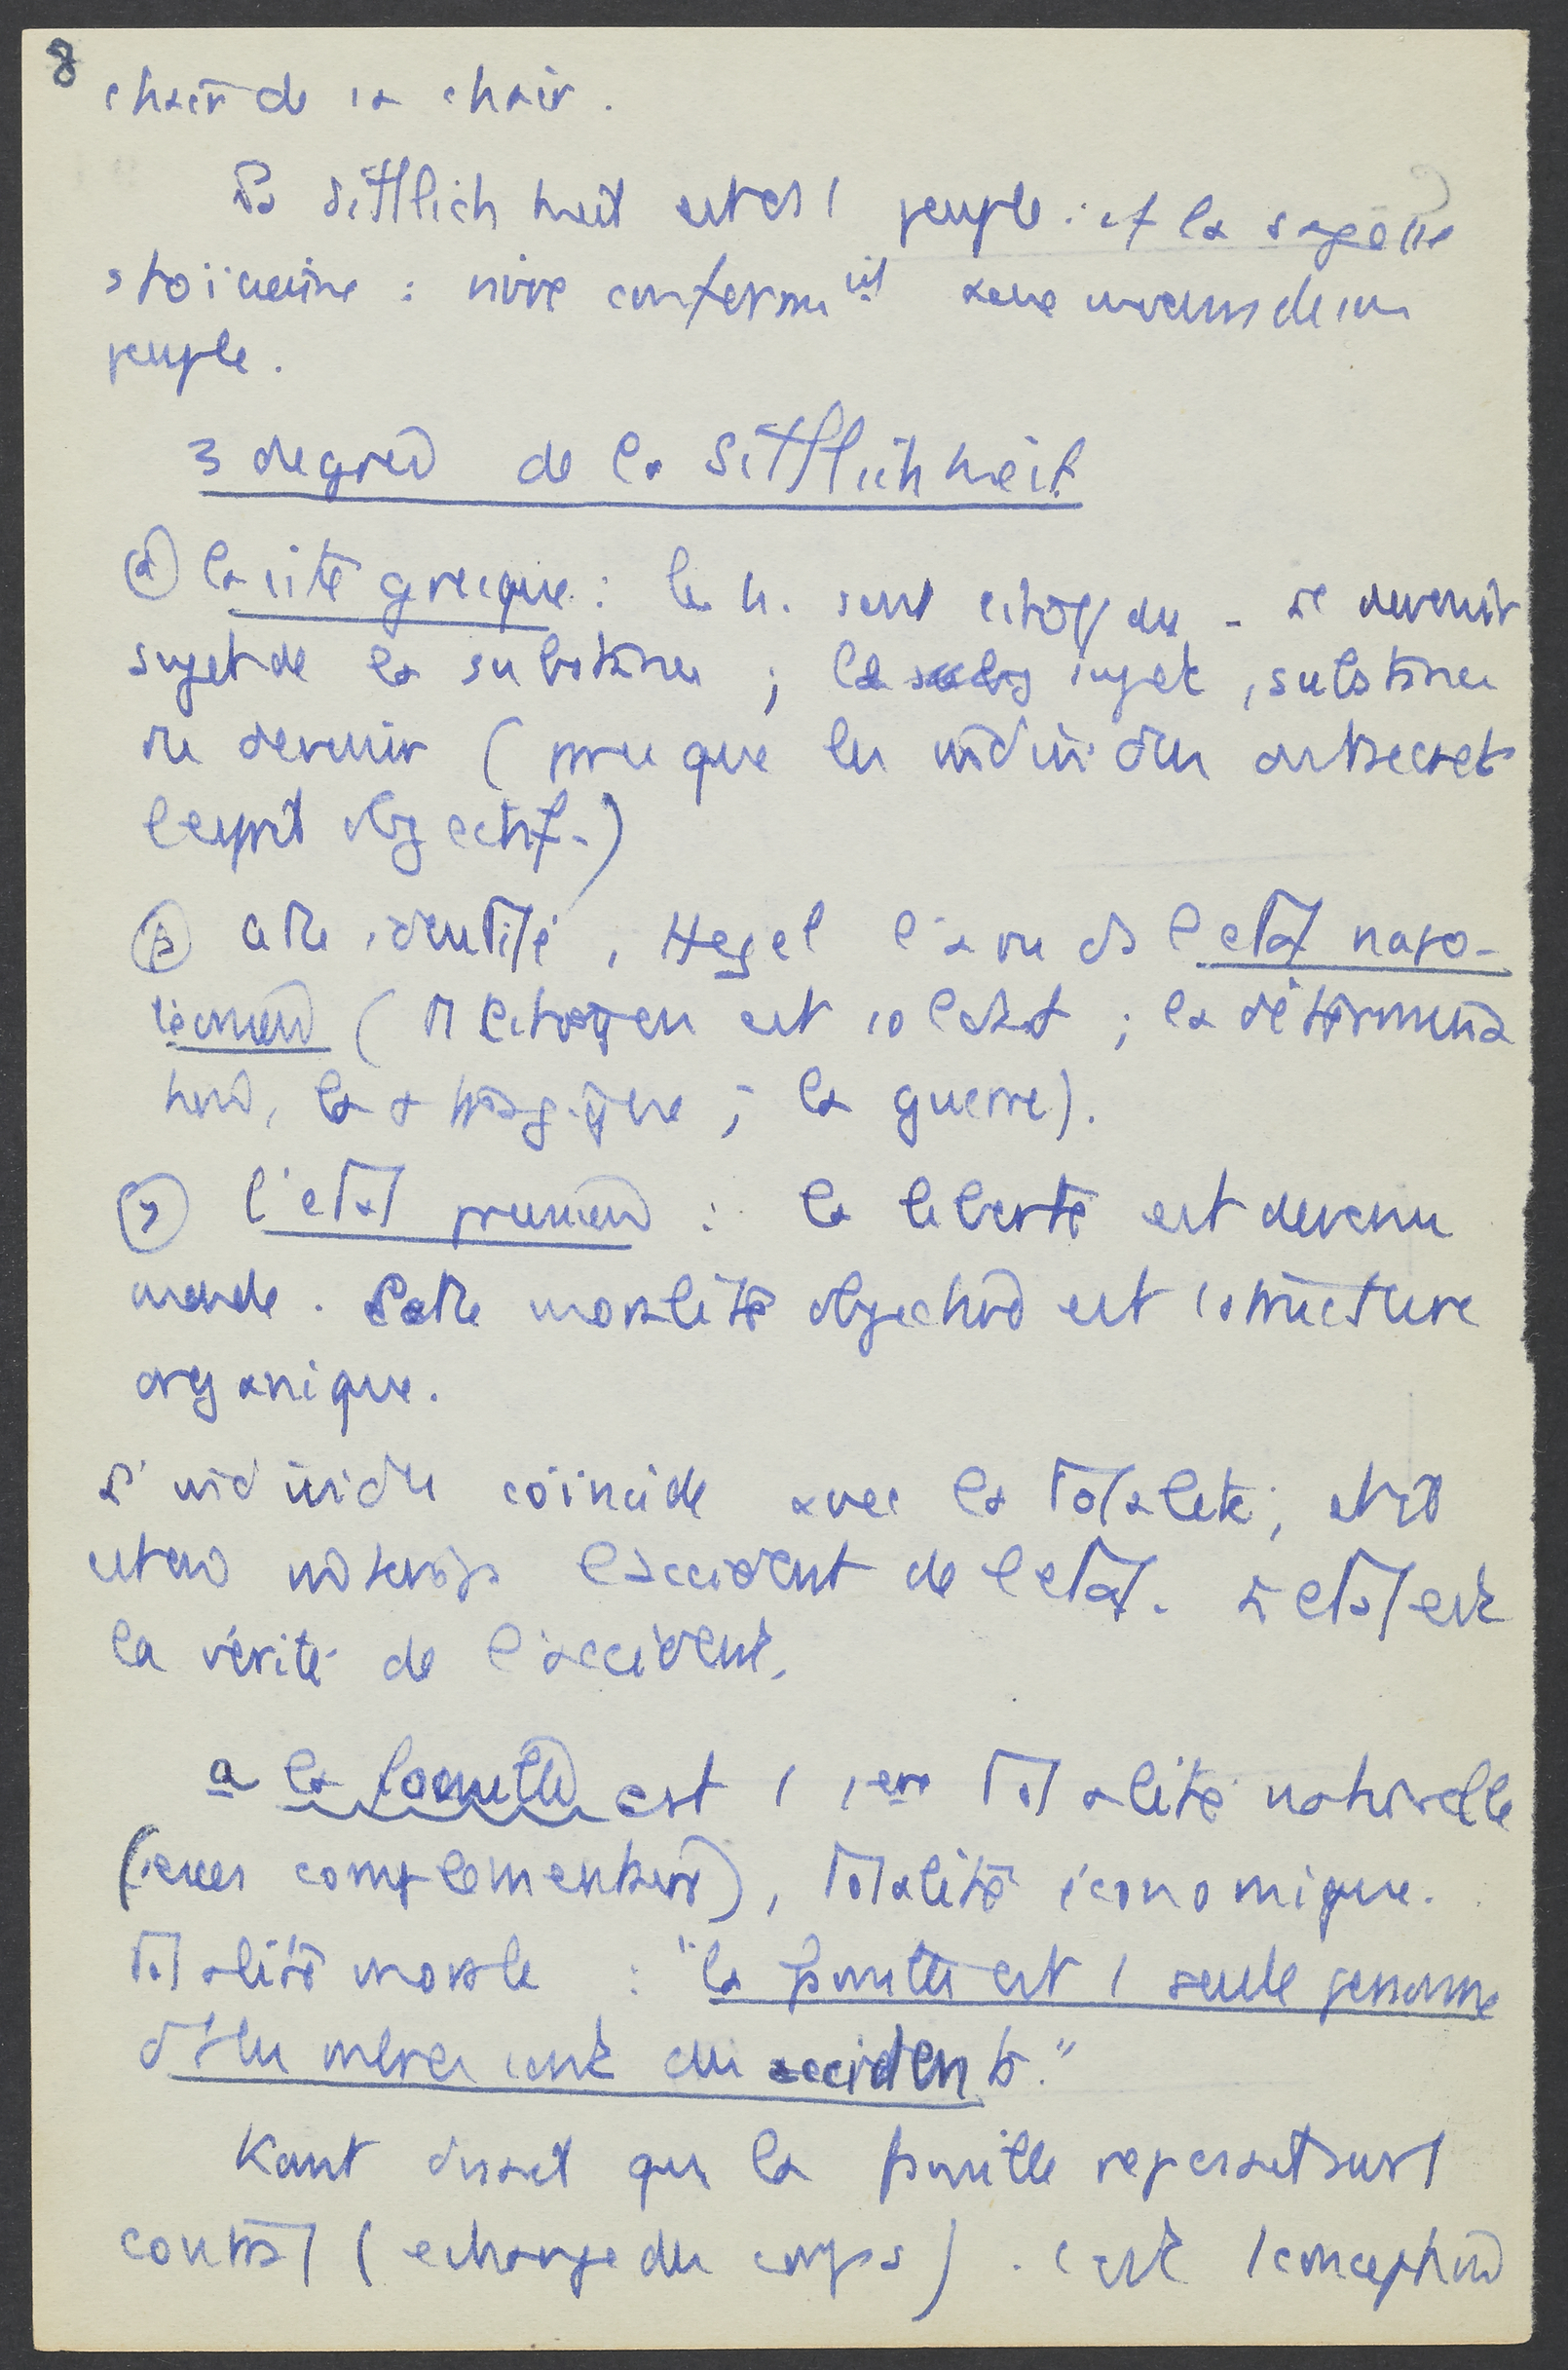 8
chair de sa chair.
La Sittlichkeit est ds 1 peuple : cf la sagesse
stoïcienne : vivre conformt aux moeurs de son
peuple.
3 degrés de la Sittlichkeit
α la cité grecque : les h. sont citoyens - le devenir
sujet de la substance ; le sujet, substance
du devenir (parce que les individus ont secrété
l'esprit objectif.)
β cette identité, Hegel l'a vu ds l'état napo-
léonien ( citoyen est soldat ; la détermina
tion, la ; la guerre).
γ l'état prussien : la liberté est devenu
monde. Cette moralité objective est structure
organique.
L'individu coïncide avec la totalité ;
l'accident de l'état. L'état est
la vérité de l'accident.
a la famille est 1 1ere totalité naturelle
(sexes complémentaires), totalité économique.
Totalité morale : "la famille est 1 seule personne
dt les membres sont des accidents."
Kant disait que la famille reposait sur 1
contrat (échange des corps). C'est 1 conception